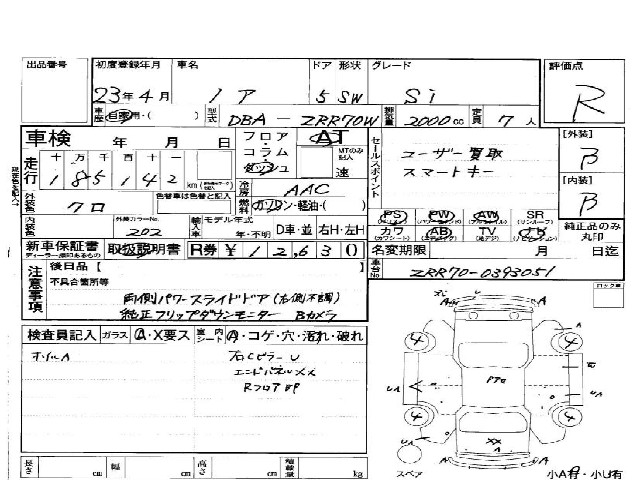 出品番号 初度登録年月 車名 ドア 形状 グレード 評価点
23年4月 ノア 5 SW Si R
車歴 自家用・( ) 型式 DBA-ZRR70W 排気量 2000cc 定員 7人
車検 年 月 日 フロア・コラム・ダッシュ AT MTのみ記入 速
セールスポイント ユーザー買取
スマートキー
[外装] B
[内装] B
走行 十 万 千 百 十 一
185142 km
冷房 AAC
外装色 クロ 色替車は色替と記入 燃料 ガソリン・軽油・( )
PS PW AW SR
(パワーウインド) (サンルーフ)
内装色 外装カラーNo. 202 輸入車 モデル年式 年・不明 D車・並 右H・左H
カワ AB TV ナビ 純正品のみ丸印
新車保証書 取扱説明書 R券 ¥12,630
ディーラー便印あるもの
名変期限 月 日迄
注意事項 後日品【
不具合箇所等
車台No. ZRR70-0393051
両側パワースライドドア(右側不調)
純正フリップダウンモニター Bカメラ
検査員記入 ガラス A・X要ス 室内シート A・コゲ・穴・汚れ・破れ
ホイルA 右Cピラー U
エンドパネルXX
Rフロア凹
長さ cm 幅 cm 高さ cm 積載量 kg
スペア 小A有・小U有